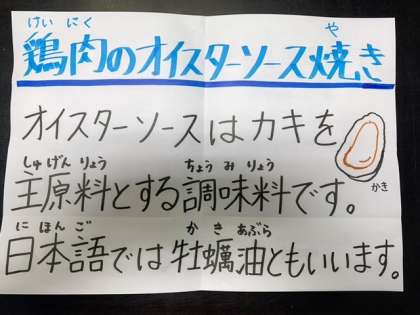 けい にく や
鶏肉のオイスターソース焼き
オイスターソースはカキを
しゅ げん りょう ちょう み りょう
主原料とする調味料です。
かき
に ほん ご か き あぶら
日本語では牡蠣油ともいいます。